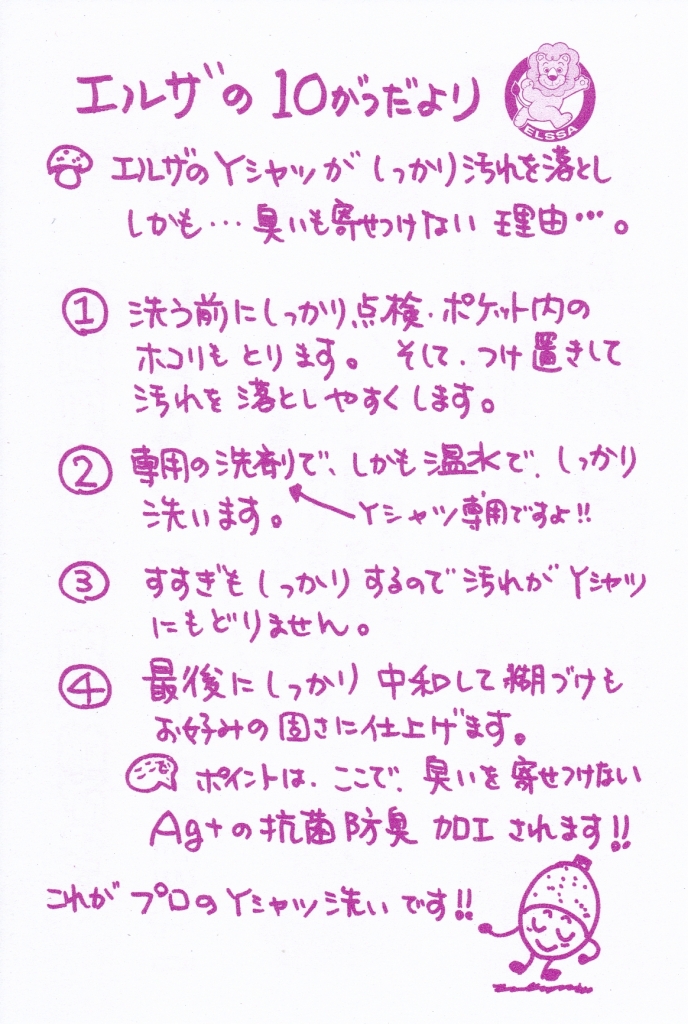 エルザの10がつだより
ELSSA
エルザのYシャツがしっかり汚れを落とし
しかも…臭いも寄せつけない理由…。
① 洗う前にしっかり点検・ポケット内の
ホコリもとります。そして、つけ置きして
汚れを落としやすくします。
② 専用の洗剤で、しかも温水で、しっかり
洗います。
Yシャツ専用ですよ!!
③ すすぎもしっかりするので汚れがYシャツ
にもどりません。
④ 最後にしっかり中和して糊づけも
お好みの固さに仕上げます。
ポイントは、ここで、臭いを寄せつけない
Ag+の抗菌防臭加工されます!!
これがプロのYシャツ洗いです!!